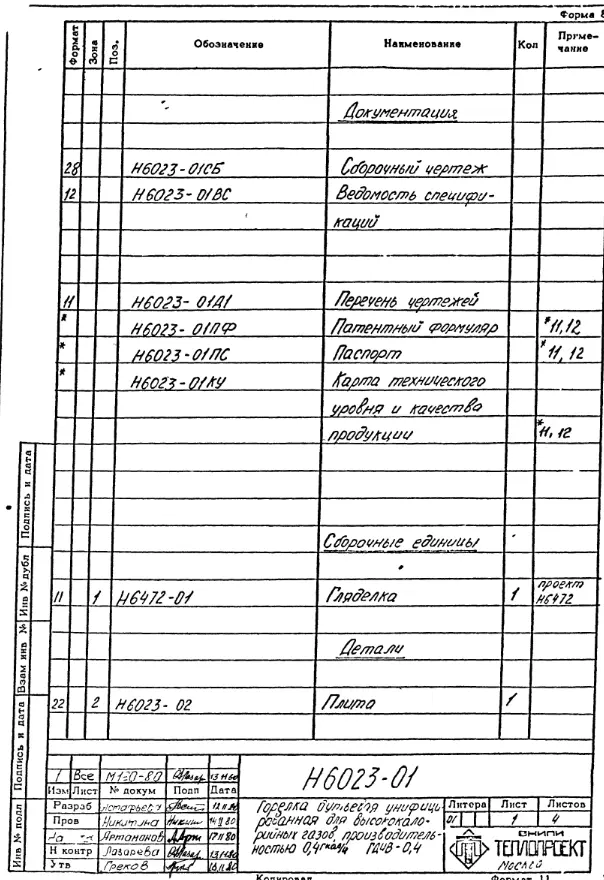 Форма 8
Формат Зона Поз. Обозначение Наименование Кол Приме-
чание
Документация
28 Н6023-01СБ Сборочный чертеж
12 Н6023-01ВС Ведомость специфи-
каций
11 Н6023-01Д1 Перечень чертежей
* Н6023-01ПФ Патентный формуляр *11,12
* Н6023-01ПС Паспорт *11,12
* Н6023-01КУ Карта технического
уровня и качества
продукции *11,12
Сборочные единицы
11 1 Н6472-01 Гляделка 1 проект
Н6472
Детали
22 2 Н6023-02 Плита 1
Подпись и дата
Инв № дубл
Взам инв №
Подпись и дата
Инв № подл
1 Все М1-0-80
Изм Лист № докум Подп Дата
Разраб
Пров Никитина
Артамонов
Н контр Лазарева
Утв Греков
Н6023-01
Горелка
рованная для высококало-
рийных газов, производитель-
ностью 0,4 ГДУВ-0,4
Литера Лист Листов
01 1 4
ВНИПИ
ТЕПЛОПРОЕКТ
Москва
Копировал Формат 11